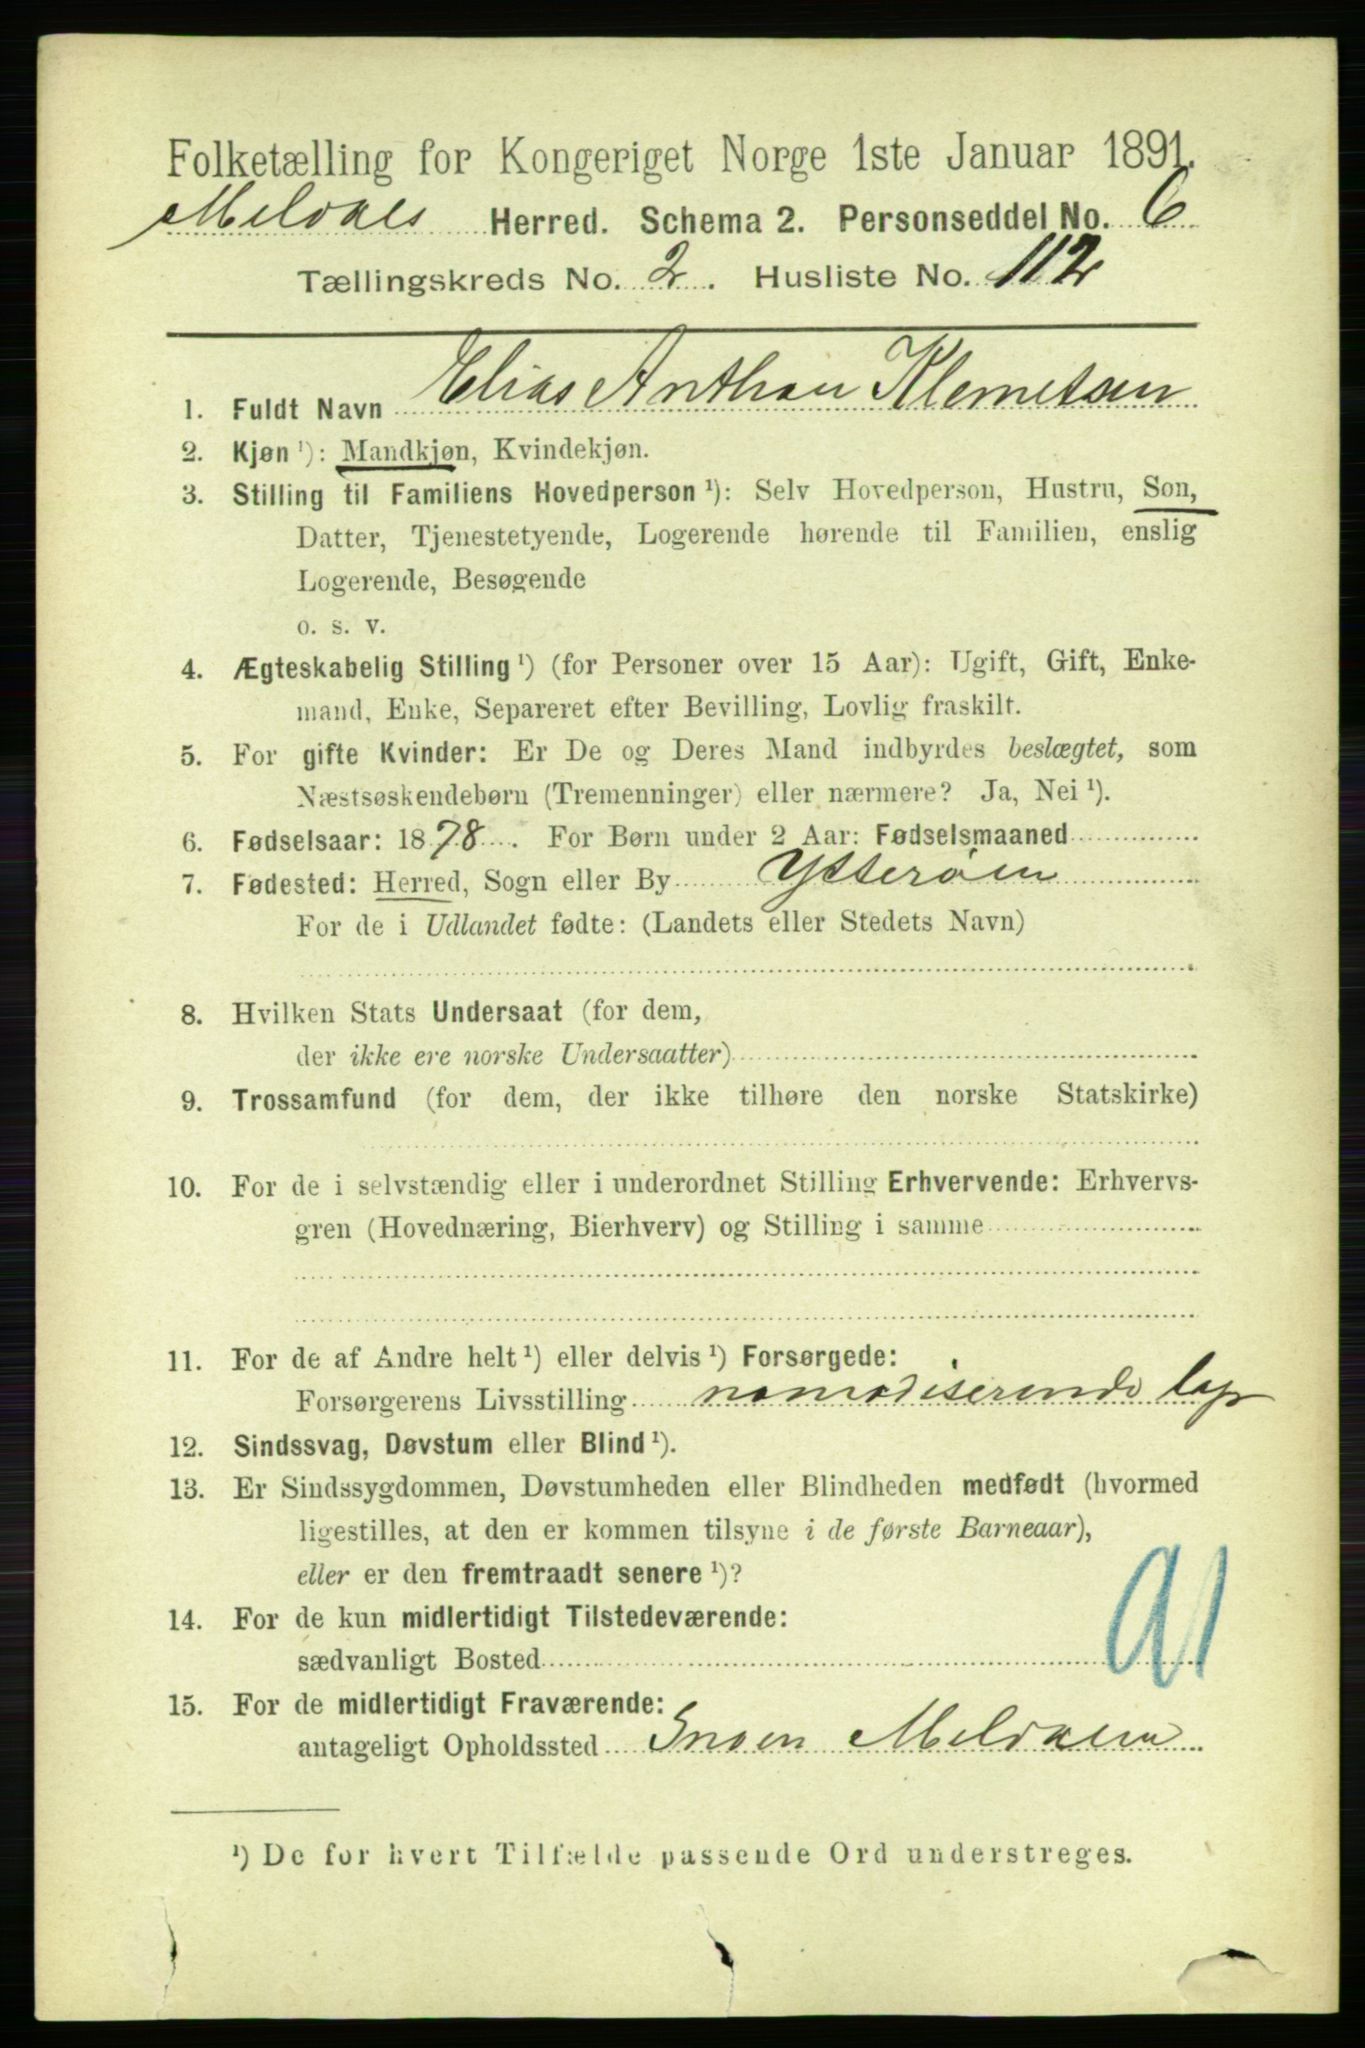 Folketælling for Kongeriget Norge 1ste Januar 1891.
Meldals Herred. Schema 2. Personseddel No. 6
Tællingskreds No. 2. Husliste No. 112
1. Fuldt Navn Elias Anthon Klemetsen
2. Kjøn ¹): Mandkjøn, Kvindekjøn.
3. Stilling til Familiens Hovedperson ¹): Selv Hovedperson, Hustru, Søn,
Datter, Tjenestetyende, Logerende hørende til Familien, enslig
Logerende, Besøgende
o. s. v.
4. Ægteskabelig Stilling ¹) (for Personer over 15 Aar): Ugift, Gift, Enke-
mand, Enke, Separeret efter Bevilling, Lovlig fraskilt.
5. For gifte Kvinder: Er De og Deres Mand indbyrdes beslægtet, som
Næstsøskendebørn (Tremenninger) eller nærmere? Ja, Nei ¹).
6. Fødselsaar: 1878. For Børn under 2 Aar: Fødselsmaaned
7. Fødested: Herred, Sogn eller By Ytterøen
For de i Udlandet fødte: (Landets eller Stedets Navn)
8. Hvilken Stats Undersaat (for dem,
der ikke ere norske Undersaatter)
9. Trossamfund (for dem, der ikke tilhøre den norske Statskirke)
10. For de i selvstændig eller i underordnet Stilling Erhvervende: Erhvervs-
gren (Hovednæring, Bierhverv) og Stilling i samme
11. For de af Andre helt ¹) eller delvis ¹) Forsørgede:
Forsørgerens Livsstilling nomadiserende lap
12. Sindssvag, Døvstum eller Blind ¹).
13. Er Sindssygdommen, Døvstumheden eller Blindheden medfødt (hvormed
ligestilles, at den er kommen tilsyne i de første Barneaar),
eller er den fremtraadt senere ¹)?
14. For de kun midlertidigt Tilstedeværende:
sædvanligt Bosted
15. For de midlertidigt Fraværende:
antageligt Opholdssted Snoen Meldalen
¹) De for hvert Tilfælde passende Ord understreges.